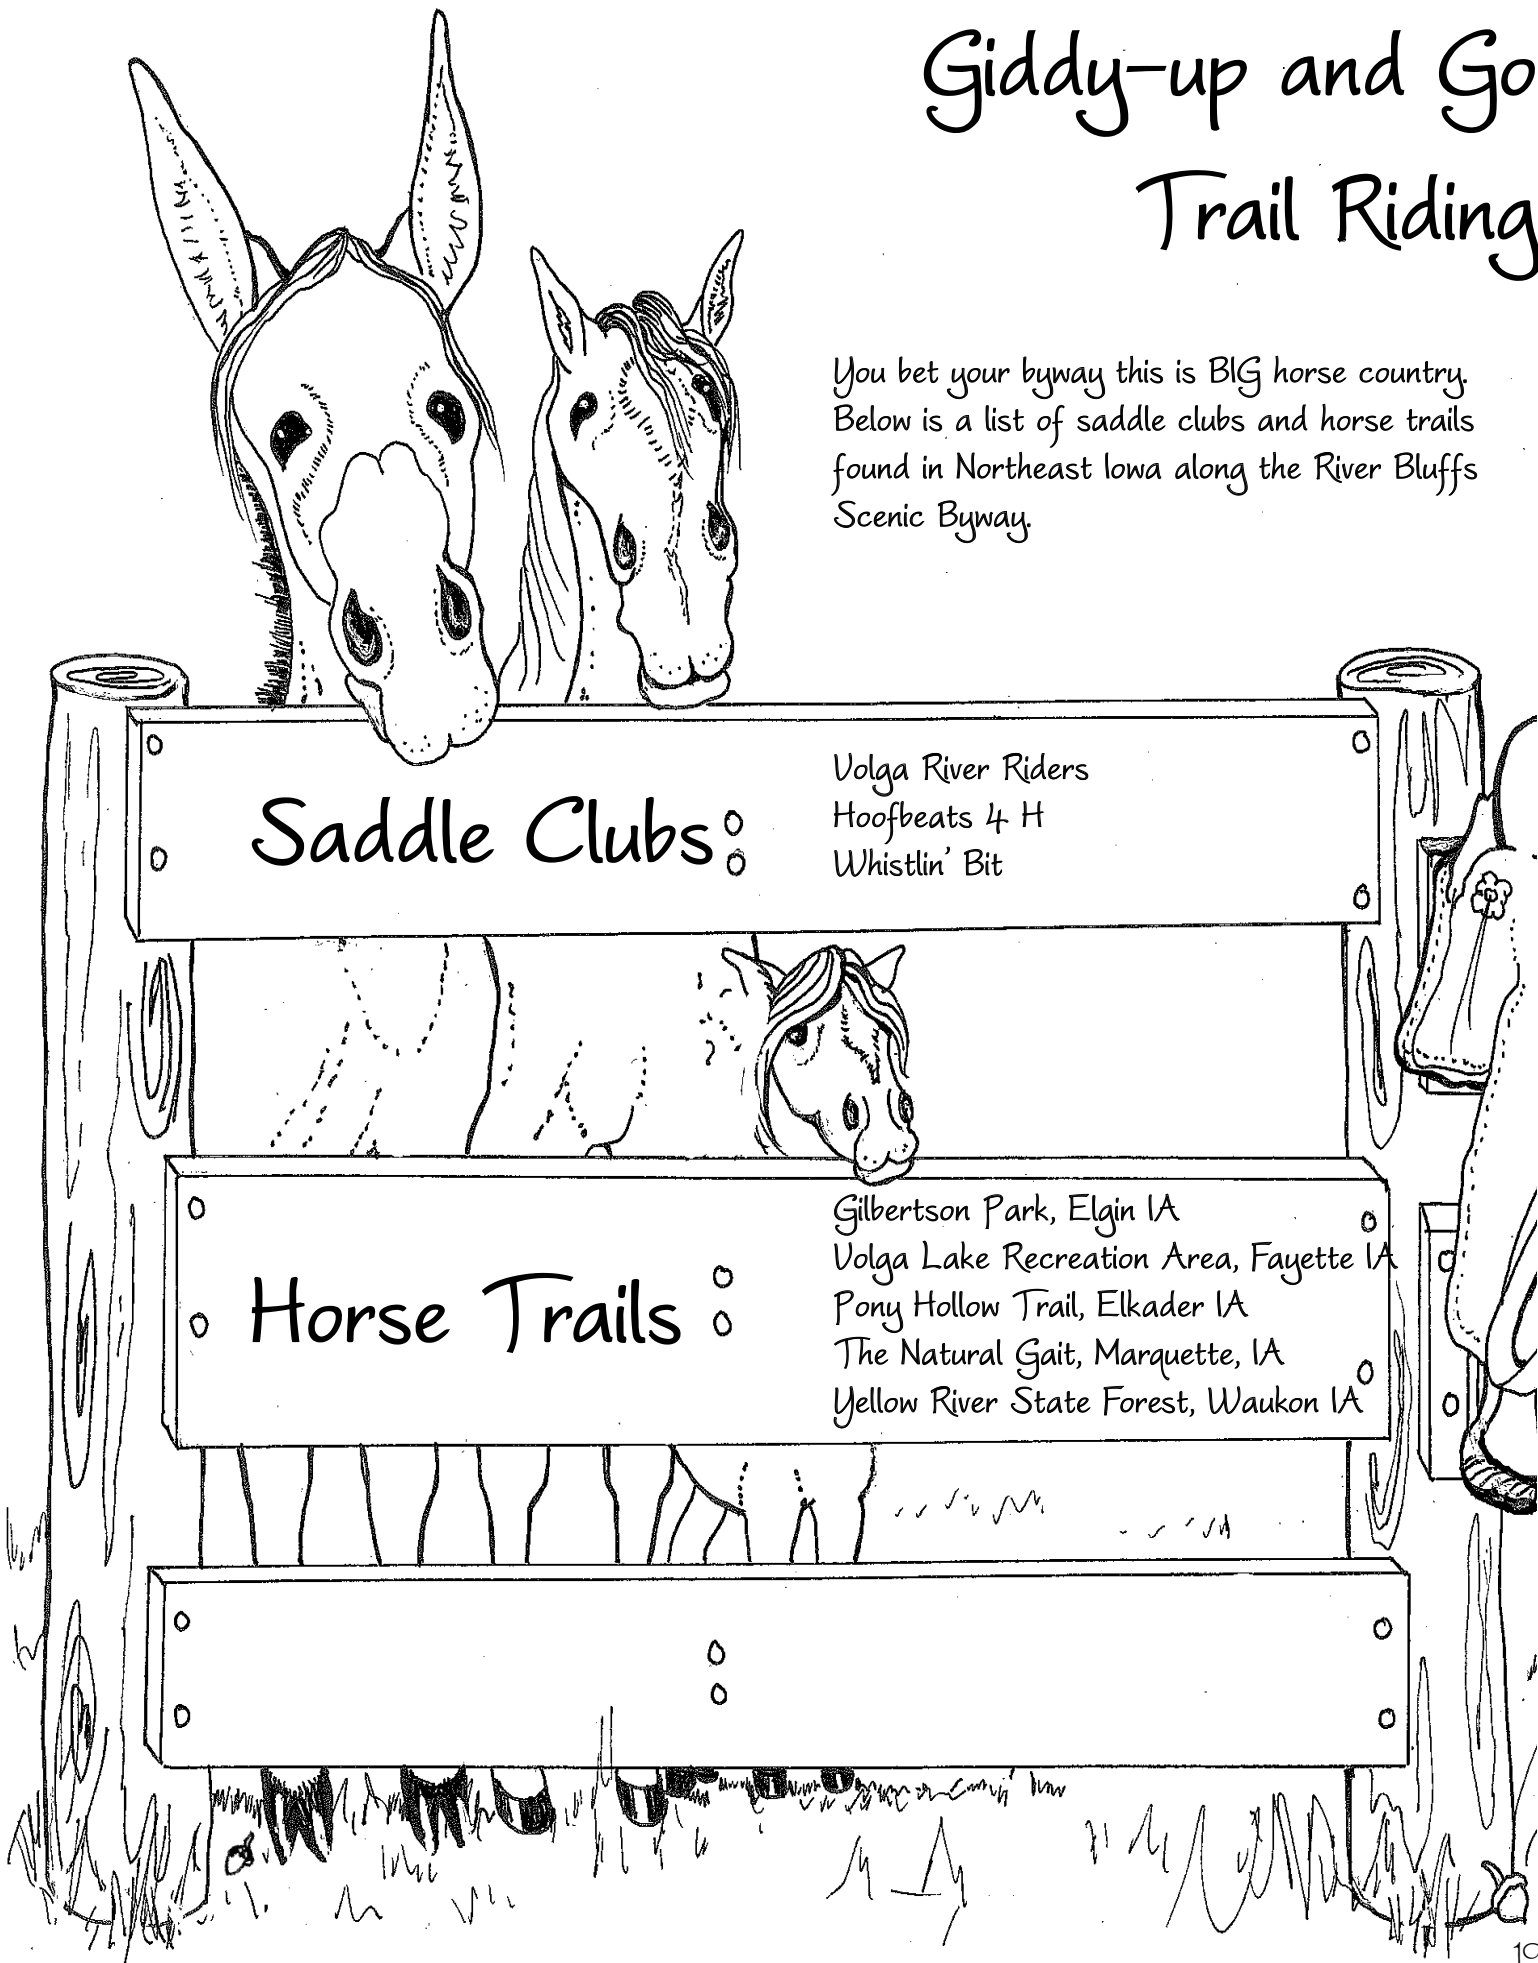 Giddy-up and Go
Trail Riding
You bet your byway this is BIG horse country.
Below is a list of saddle clubs and horse trails
found in Northeast Iowa along the River Bluffs
Scenic Byway.
Saddle Clubs
Volga River Riders
Hoofbeats 4 H
Whistlin' Bit
Horse Trails
Gilbertson Park, Elgin IA
Volga Lake Recreation Area, Fayette IA
Pony Hollow Trail, Elkader IA
The Natural Gait, Marquette, IA
Yellow River State Forest, Waukon IA